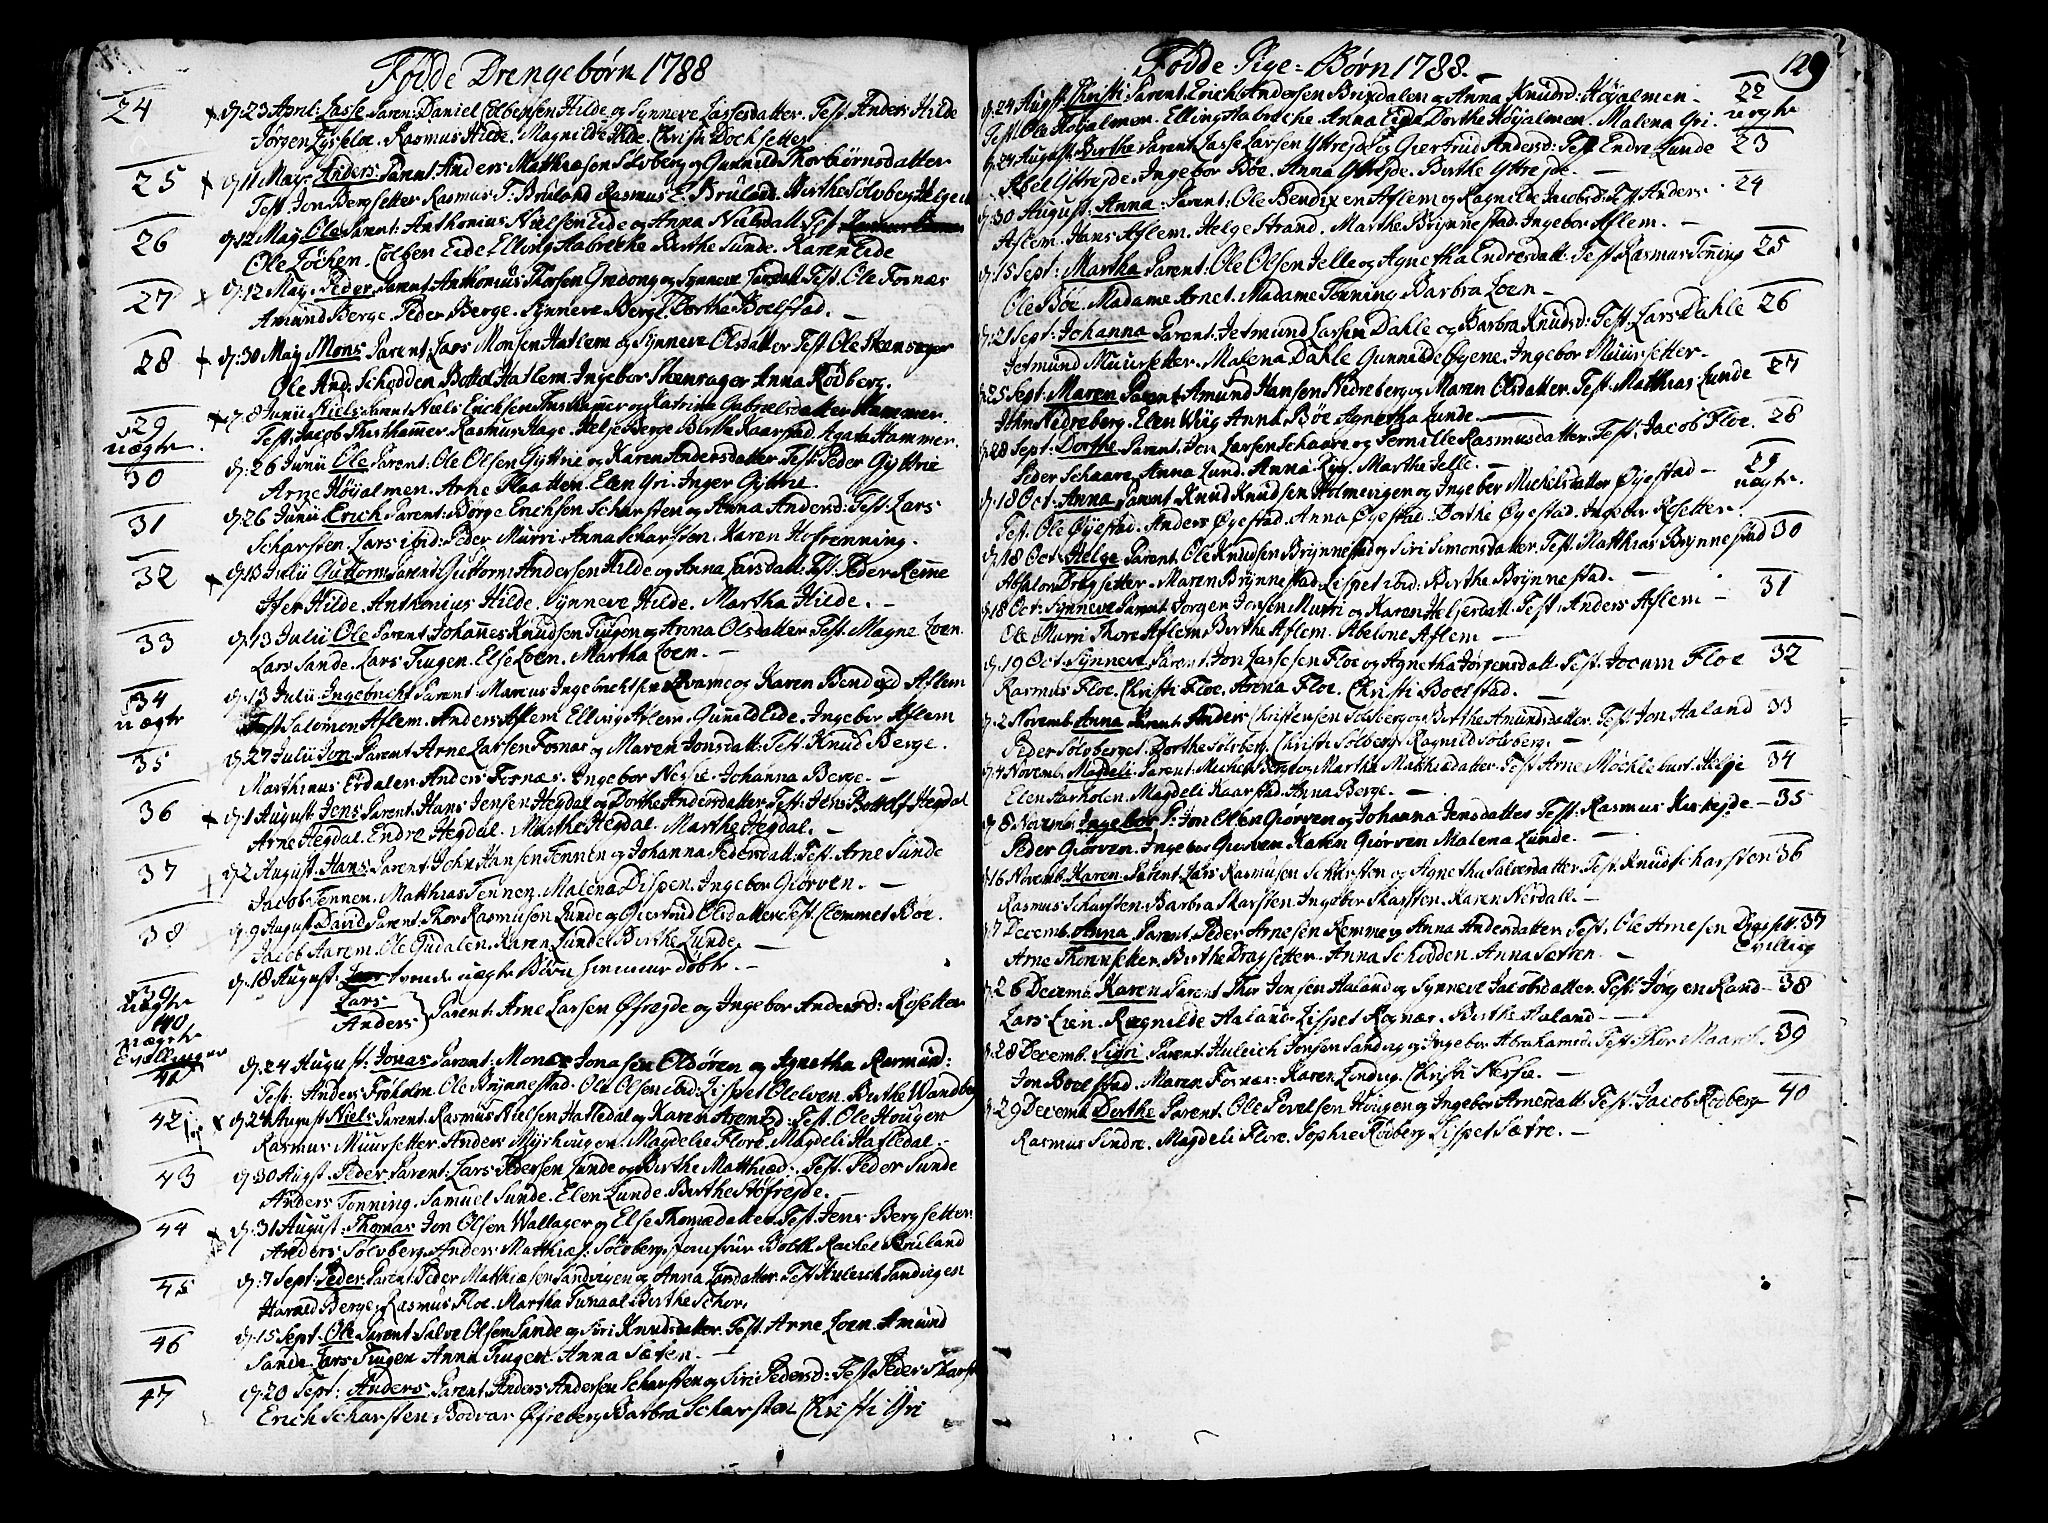 Fødde Drengebørn 1788
24 d: 23 April: Lasse Paren: Daniel Colbensen Hilde og Synneve Lassesdatter. Test: Anders Hilde
Jørgen Rasmus Hilde. Magnilde Hilde. Christi Dochsetter
25 d: 11 May: Anders: Parent: Anders Mathiæsen Sølvberg og Gunnild Thorbiørnsdatter
Test: Jon Bergsetter Rasmus P: Bruland Rasmus E: Bruland. Berthe Sølvberg Helge
26 d: 12 May: Ole Parent: Anthonius Nielsen Eide og Anna Nielsdatt: Test:
Ole Løchen. Colben Eide. Elling Aabrecke Berthe Sunde. Karen Eide
27 d: 12 May: Peder Parent: Anthonius Thorsen og Synneve Larsdatt: Test: Ole Fornæs
Amund Berge. Peder Berge. Synneve Berge. Dorthe Boelstad.
28 d: 30 May Mons Parent: Lars Monsen Hatlem og Synneve Olsdatter Test: Ole Skenrager
Ole And: Schødden Bottol Hatlem. Ingebor Skenrager Anna Rødberg.
29 uægte d: 8 Junii Niels Parent Niels Erichsen Thisthammer og Katrina Gabrielsdatter Hammer
Test: Jacob Thisthammer Rasmus Hage. Helje Berge Berthe Kaarstad Agata Hammer.
30 d: 26 Junii Ole Parent: Ole Olsen Gÿttrie og Karen Andersdatter Test: Peder Gÿttrie
Arne Höyalmen. Arne Flaatten. Elen Gri. Inger Gÿttrie
31 d: 26 Junii Erich Parent: Børge Erichsen Scharsten og Anna Andersd: Test: Lars
Scharsten. Lars ibid: Peder Murri. Anna Scharsten. Karen Hofrenning.
32 d: 13 Julii Guttorm Parent: Guttorm: Andersen Hilde og Anna Larsdatt: Test: Peder Remme
Ifer Hilde. Anthonius Hilde. Synneve Hilde. Martha Hilde.
33 d: 13 Julii Ole Parent: Johannes Knudsen Tiugen og Anna Olsdatter Test: Magne Loen
Lars Sande. Lars Tiugen. Else Loen. Martha Loen.
34 uægte d: 13 Julii Ingebricht Parent: Marcus Ingebrichtsen og Karen Bendixd Aflem
Test Salomon Aflem. Anders Aflem Elling Aflem. Gunnild Eide. Ingebor Aflem
35 d: 27 Julii Jon Parent Arne Larsen Fornæs og Maren Jonsdatt: Test: Knud Berge.
Marthinus Erdalen Anders Fornæs. Ingebor Nessie. Johanna Berge.
36 d: 1 August: Jens Parent: Hans Jensen Hegdal og Dorthe Andersdatter Test: Jens Bottolf Hegdal
Arne Hegdal. Endre Hegdal. Marthe Hegdal. Marthe Hegdal.
37 d: 2 August: Hans Parent: John Hansen Tennen og Johanna Pedersdatt: Test: Arne Sunde
Jacob Tennen. Matthias Tennen. Malena Dispen. Ingebor Giørven.
38 d: 9 August David Parent: Thor Rasmusen Lunde og Giertrud Olsdatter Test: Clemmet Bøe
Jacob Aarem. Ole Gudalen. Karen Lunde Berthe Lunde.
d: 18 August: tvende uægte Børn hiemme døbte.
39 uægte Lars
40 uægte Tvillinger Anders } Parent: Arne Larsen Øfrejde og Ingebor Andersd: Rosetter
41 d: 24 August: Jonas Parent: Mons Jonasen Oldøren og Agnetha Rasmusd:
Test: Anders Froholm Ole Brynnestad. Ole Olsen ibid: Lispet Olelven. Berthe Wandberg
42 d: 24 August Niels Parent: Rasmus Nielsen Hafledal og Karen Arensd: Test: Ole Hougen
Rasmus Muursetter. Anders Myrhougen Magdelie Flore. Magdeli Hafledal.
43 d: 30 Augst: Peder Parent: Lars Pedersen Lunde og Berthe Matthiæd: Test: Peder Sunde
Anders Tonning. Samuel Sunde. Elen Lunde. Berthe Støfrejde.
44 d: 31 August: Thomas Jon Olsen Wallager og Else Thomædatter Test: Jens Bergsetter.
Anders Sølvberg. Anders Matthiæs: Sølvberg. Jomfrue Bolth Rachel Bruland
45 d: 7 Sept: Peder Parent: Peder Matthiæsen Sandvigen og Anna Larsdatter Test: Huleich Sandvigen
Harald Berge. Rasmus Floe. Martha Tunaal Berthe Schor.
46 d: 15 Sept. Ole Parent Salve Olsen Sande og Siri Knudsdatter. Test. Arne Loen Amund
Sande. Lars Tiugen Anna Tiugen. Anna Sæten.
47 d: 20 Sept: Anders: Parent Anders Andersen Scharsten og Siri Pedersd: Test Peder Skarsten
Erich Scharsten. Bodvar Øfreberg Barbra Scharsten Christi Gri
Fødde Pige-Børn 1788. 129
d: 24 Augst: Christi Parent: Erich Andersen Brixdalen og Anna Knudsd: Höyalmen 22
Test: Ole Höyalmen. Elling Aabrecke. Anna Eide Dorthe Höyalmen. Malena Gri. uægte
d: 24 August: Berthe Parent Lasse Larsen Yttrejde og Giertrud Andersd: Test Endre Lunde 23
Abel Yttrejde. Ingebor Bøe. Anna Yttrejde. Berthe Yttrejde.
d: 30 August: Anna Parent: Ole Bendixen Aflem og Ragnilde Jacobsd: Test Anders 24
Aflem. Hans Aflem. Helge Strand. Marthe Brynnestad. Ingebor Aflem.
d: 15 Sept: Martha Parent: Ole Olsen Jelle og Agnetha Endresdatt: Test: Rasmus Tonning 25
Ole Bøe. Madame Arnet. Madame Tonning Barbra Loen
d: 21 Sept: Johanna Parent: Jetmund Larsen Dahle og Barbra Knudsd: Test: Lars Dahle 26
Jetmund Muursetter. Malena Dahle Gunnilde Øyene. Ingebor Muursetter
d: 25 Sept: Maren Parent: Amund Hansen Nedreberg og Maren Olsdatter. Test: Matthias Lunde 27
John Nedreberg. Elen Wiig Anna Bøe Agnetha Lunde.
d: 28 Sept: Dorthe Parent: Jon Larsen Schaare og Pernille Rasmusdatter. Test: Jacob Floe. 28
Peder Schaare. Anna Lund. Anna Ryg. Marthe Jelle.
d: 18 Oct: Anna Parent Knud Knudsen Holmevigen og Ingebor Michelsdatter Øyestad 29 uægte.
Test: Ole Øyestad. Anders Øyestad. Anna Øyestad. Dorthe Øyestad. Ingebor Rosetter.
d: 18 Oct Helge Parent: Ole Knudsen Brynnestad og Siri Simonsdatter. Test: Matthias Brynnestad 30
Absalon Dragsetter. Maren Brynnestad. Lispet ibid: Berthe Brynnestad.
d: 18 Oct: Synneve Parent Jorgen Jonsen Murri og Karen Heljesdatt: Test: Anders Aflem 31
Ole Murri Thore Aflem. Berthe Aflem. Abelone Aflem
d: 19 Oct. Synneve Parent: Jon Lassesen Floe og Agnetha Jørgensdatt: Test: Jocum Floe 32
Rasmus Floe. Christi Floe. Anna Floe. Christi Boelstad.
d: 2 Novemb. Anna Parent: Anders Christensen Sølvberg og Berthe Amundsdatter. Test: Jon Aaland 33
Peder Sølvberget. Dorthe Sølvberg. Christi Sølberg. Ragnild Sølvberg.
d: 4 Novemb. Magdeli Parent: Michel Berg og Martha Matthisdatter. Test Arne Møchlebust. Helje 34
Elen Aarholen. Magdeli Kaarstad. Anna Berge.
d: 8 Novemb. Ingebor P: Jon Olsen Giørven og Johanna Jensdatter Test: Rasmus 35
Peder Giørven. Ingebor Giørven Karen Giørven Malena Lunde.
d: 16 Novemb. Karen Parent: Lars Rasmusen Scharsten og Agnetha Salvesdatter. Test: Knud Scharsten 36
Rasmus Scharsten. Barbra Skarsten. Ingebor Skarsten. Karen Nesdall.
d: 7 Decemb. Anna Parent. Peder Arnesen Remme og Anna Andersdatter Test. Ole Arnesen Dragsett: 37
Arne Thonnsetter. Berthe Dragsetter. Anna Schødden Anna Sætren. Tvilling
d: 26 Decemb: Karen Parent Thor Jonsen Aaland og Synneve Jacobsdatter. Test: Jørgen Rand 38
Lars Eien. Ragnilde Aaland Lispet Rognæs. Berthe Aaland.
d: 28 Decemb. Sigri Parent: Huleich Jonsen Sandvig og Ingebor Abrahamsd: Test: Thor Maarst. 39
Jon Boelstad. Maren Fornæs. Karen Lindvig. Christi Nessie.
d: 29 Decemb Dorthe Parent: Ole Povelsen Hougen og Ingebor Arnesdatt: Test: Jacob Rødberg 40
Rasmus Sindre. Magdeli Flore. Sophie Rødberg Lispet Sætre.